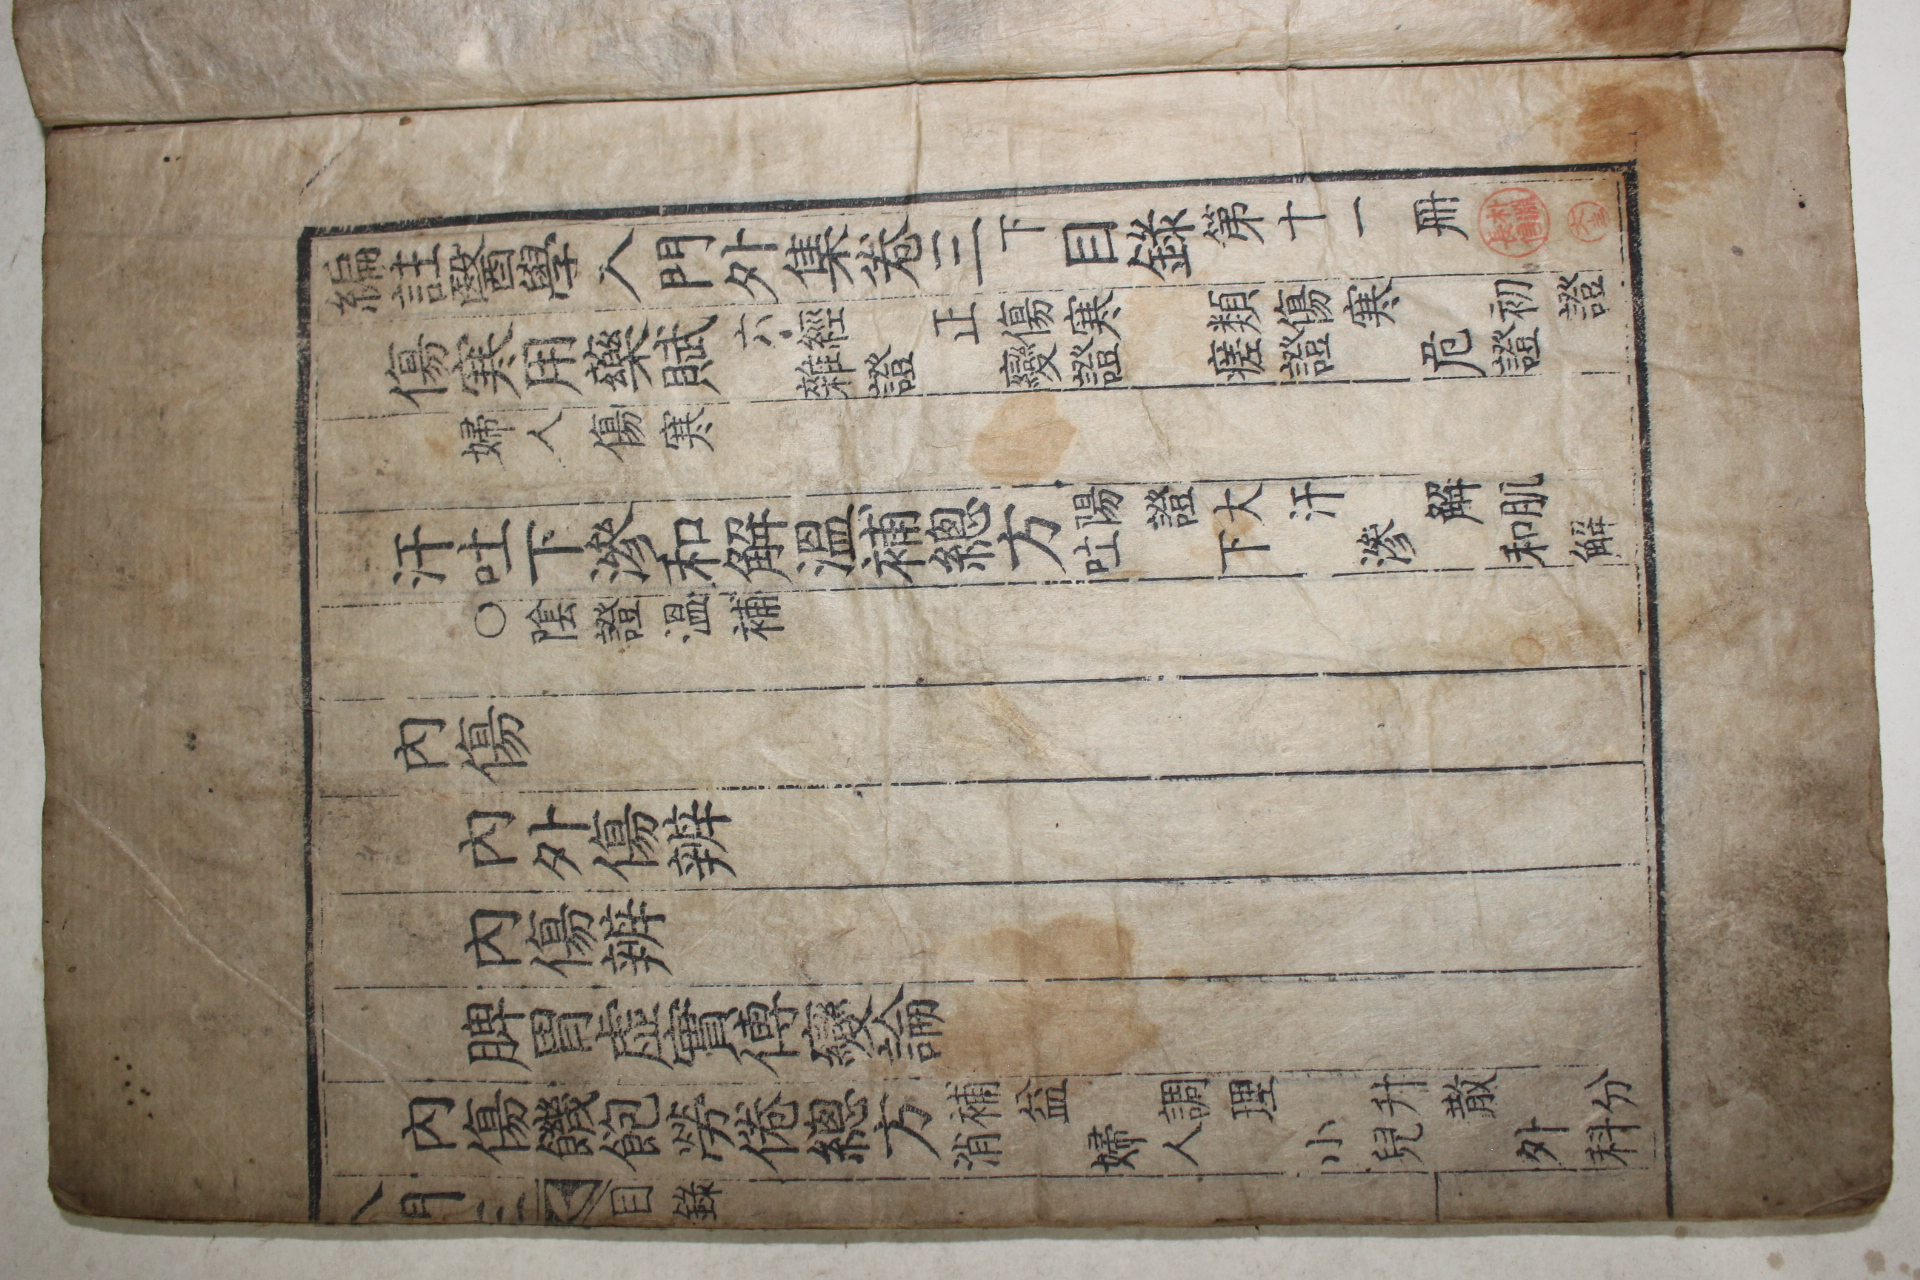 編註醫學入門外集卷三下目錄第十一冊
傷寒用藥賦
六經 正傷寒 類傷寒 初證
雜證 變證 瘥證 危證
婦人傷寒
汗吐下滲和解溫補總方
陽證 大汗 解肌
吐 下 滲 和解
○陰證溫補
內傷
內外傷辨
內傷辨
脾胃虛實傳變論
內傷饑飽勞倦總方
補益 調理 升散 分
消 婦人 小兒 外科
三 目錄